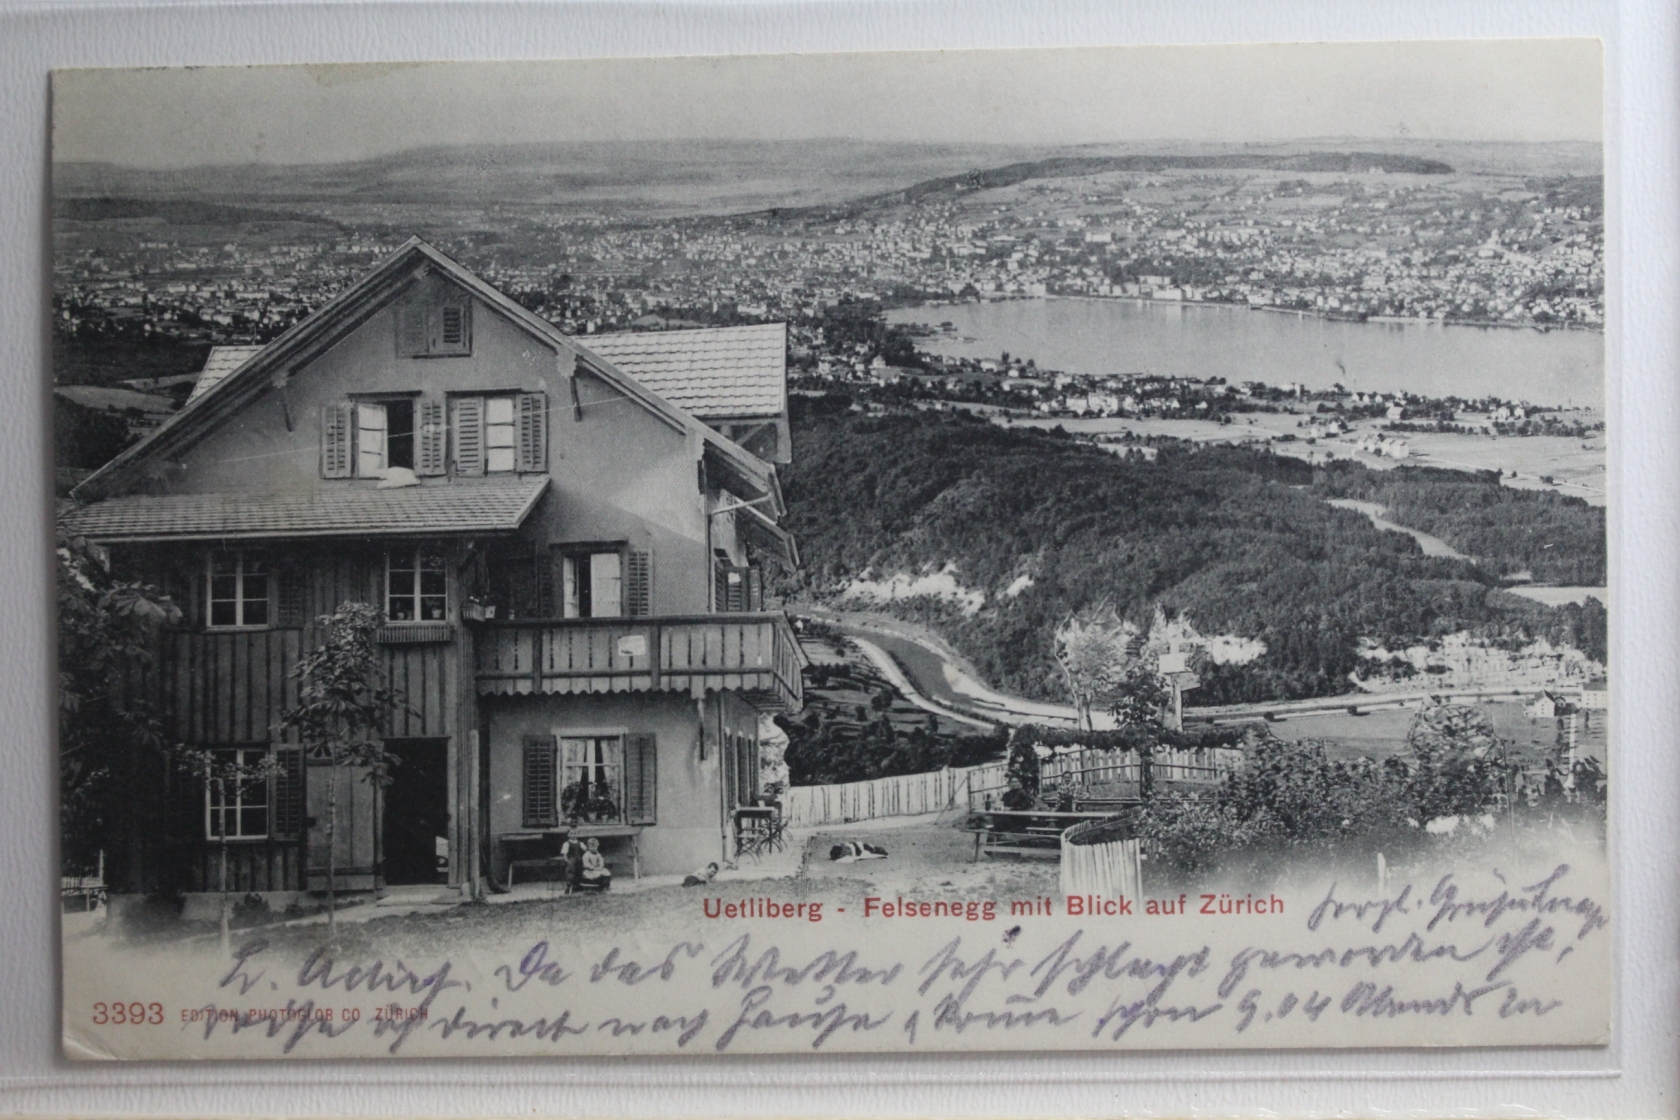 Uetliberg - Felsenegg mit Blick auf Zürich
herzl. Gruß
L. Da das Wetter sehr schlecht geworden ist,
3393 EDITION PHOTOGLOB CO ZÜRICH
reise ich direct nach Hause & komme schon 9.04 Abends an